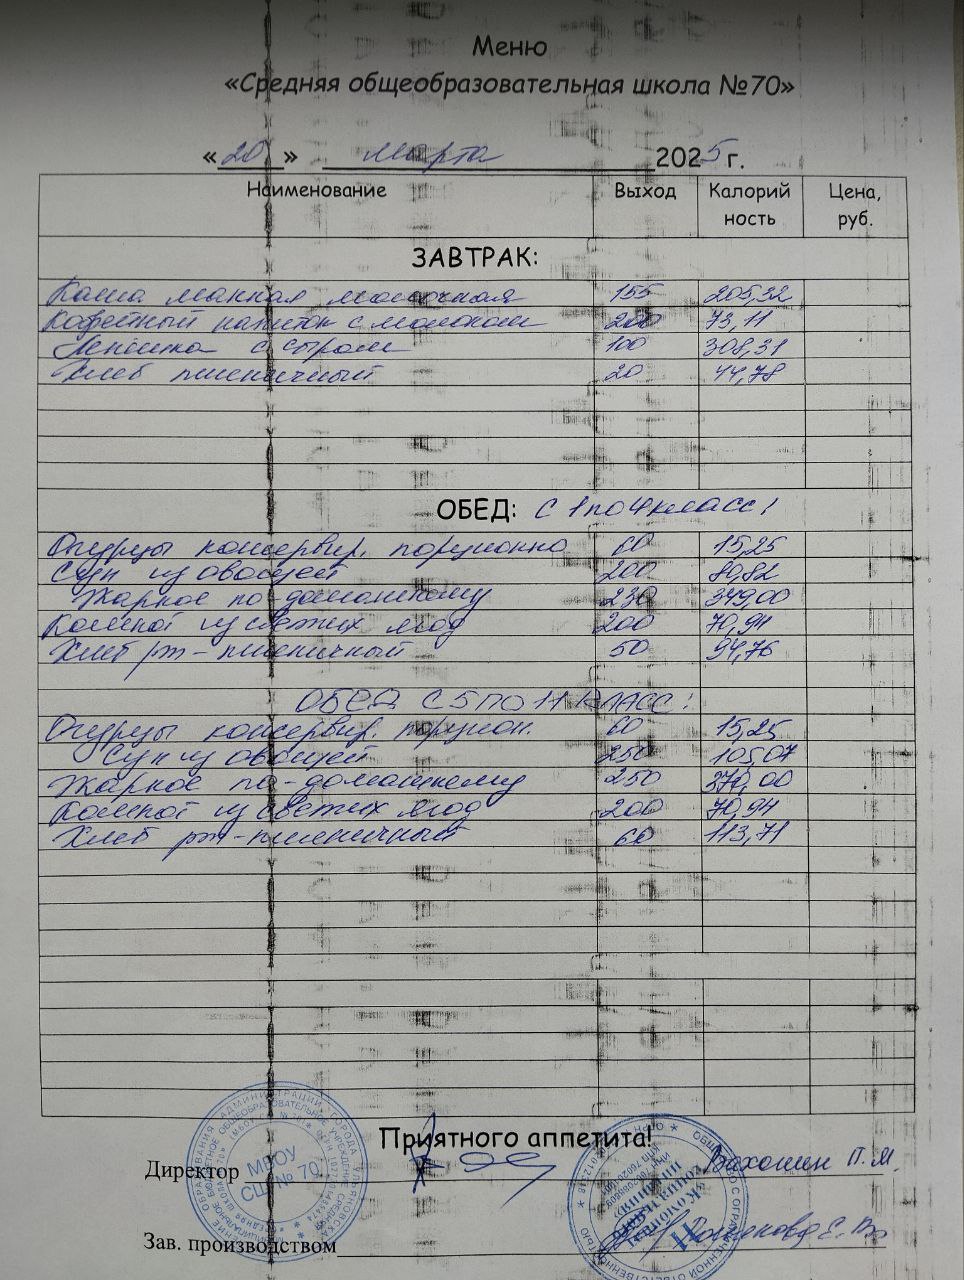 Меню
«Средняя общеобразовательная школа №70»
«20» марта 2025 г.
Наименование Выход Калорий Цена,
ность руб.
ЗАВТРАК:
Каша манная молочная 155 205,32
Кофейный напиток с молоком 200 73,11
Лепешка с сыром 100 308,31
Хлеб пшеничный 20 44,78
ОБЕД: с 1 по 4 класс:
Огурцы консервир. порционно 60 15,25
Суп из овощей 200 80,82
Жаркое по-домашнему 230 349,00
Компот из свежих плод 200 70,94
Хлеб рж-пшеничный 50 94,76
ОБЕД С 5 ПО 11 КЛАСС:
Огурцы консервир. порцион. 60 15,25
Суп из овощей 250 105,07
Жаркое по-домашнему 250 374,00
Компот из свежих плод 200 70,94
Хлеб рж-пшеничный 60 113,71
Приятного аппетита!
Директор П.М.
МБОУ
СШ № 70
Зав. производством Е.В.